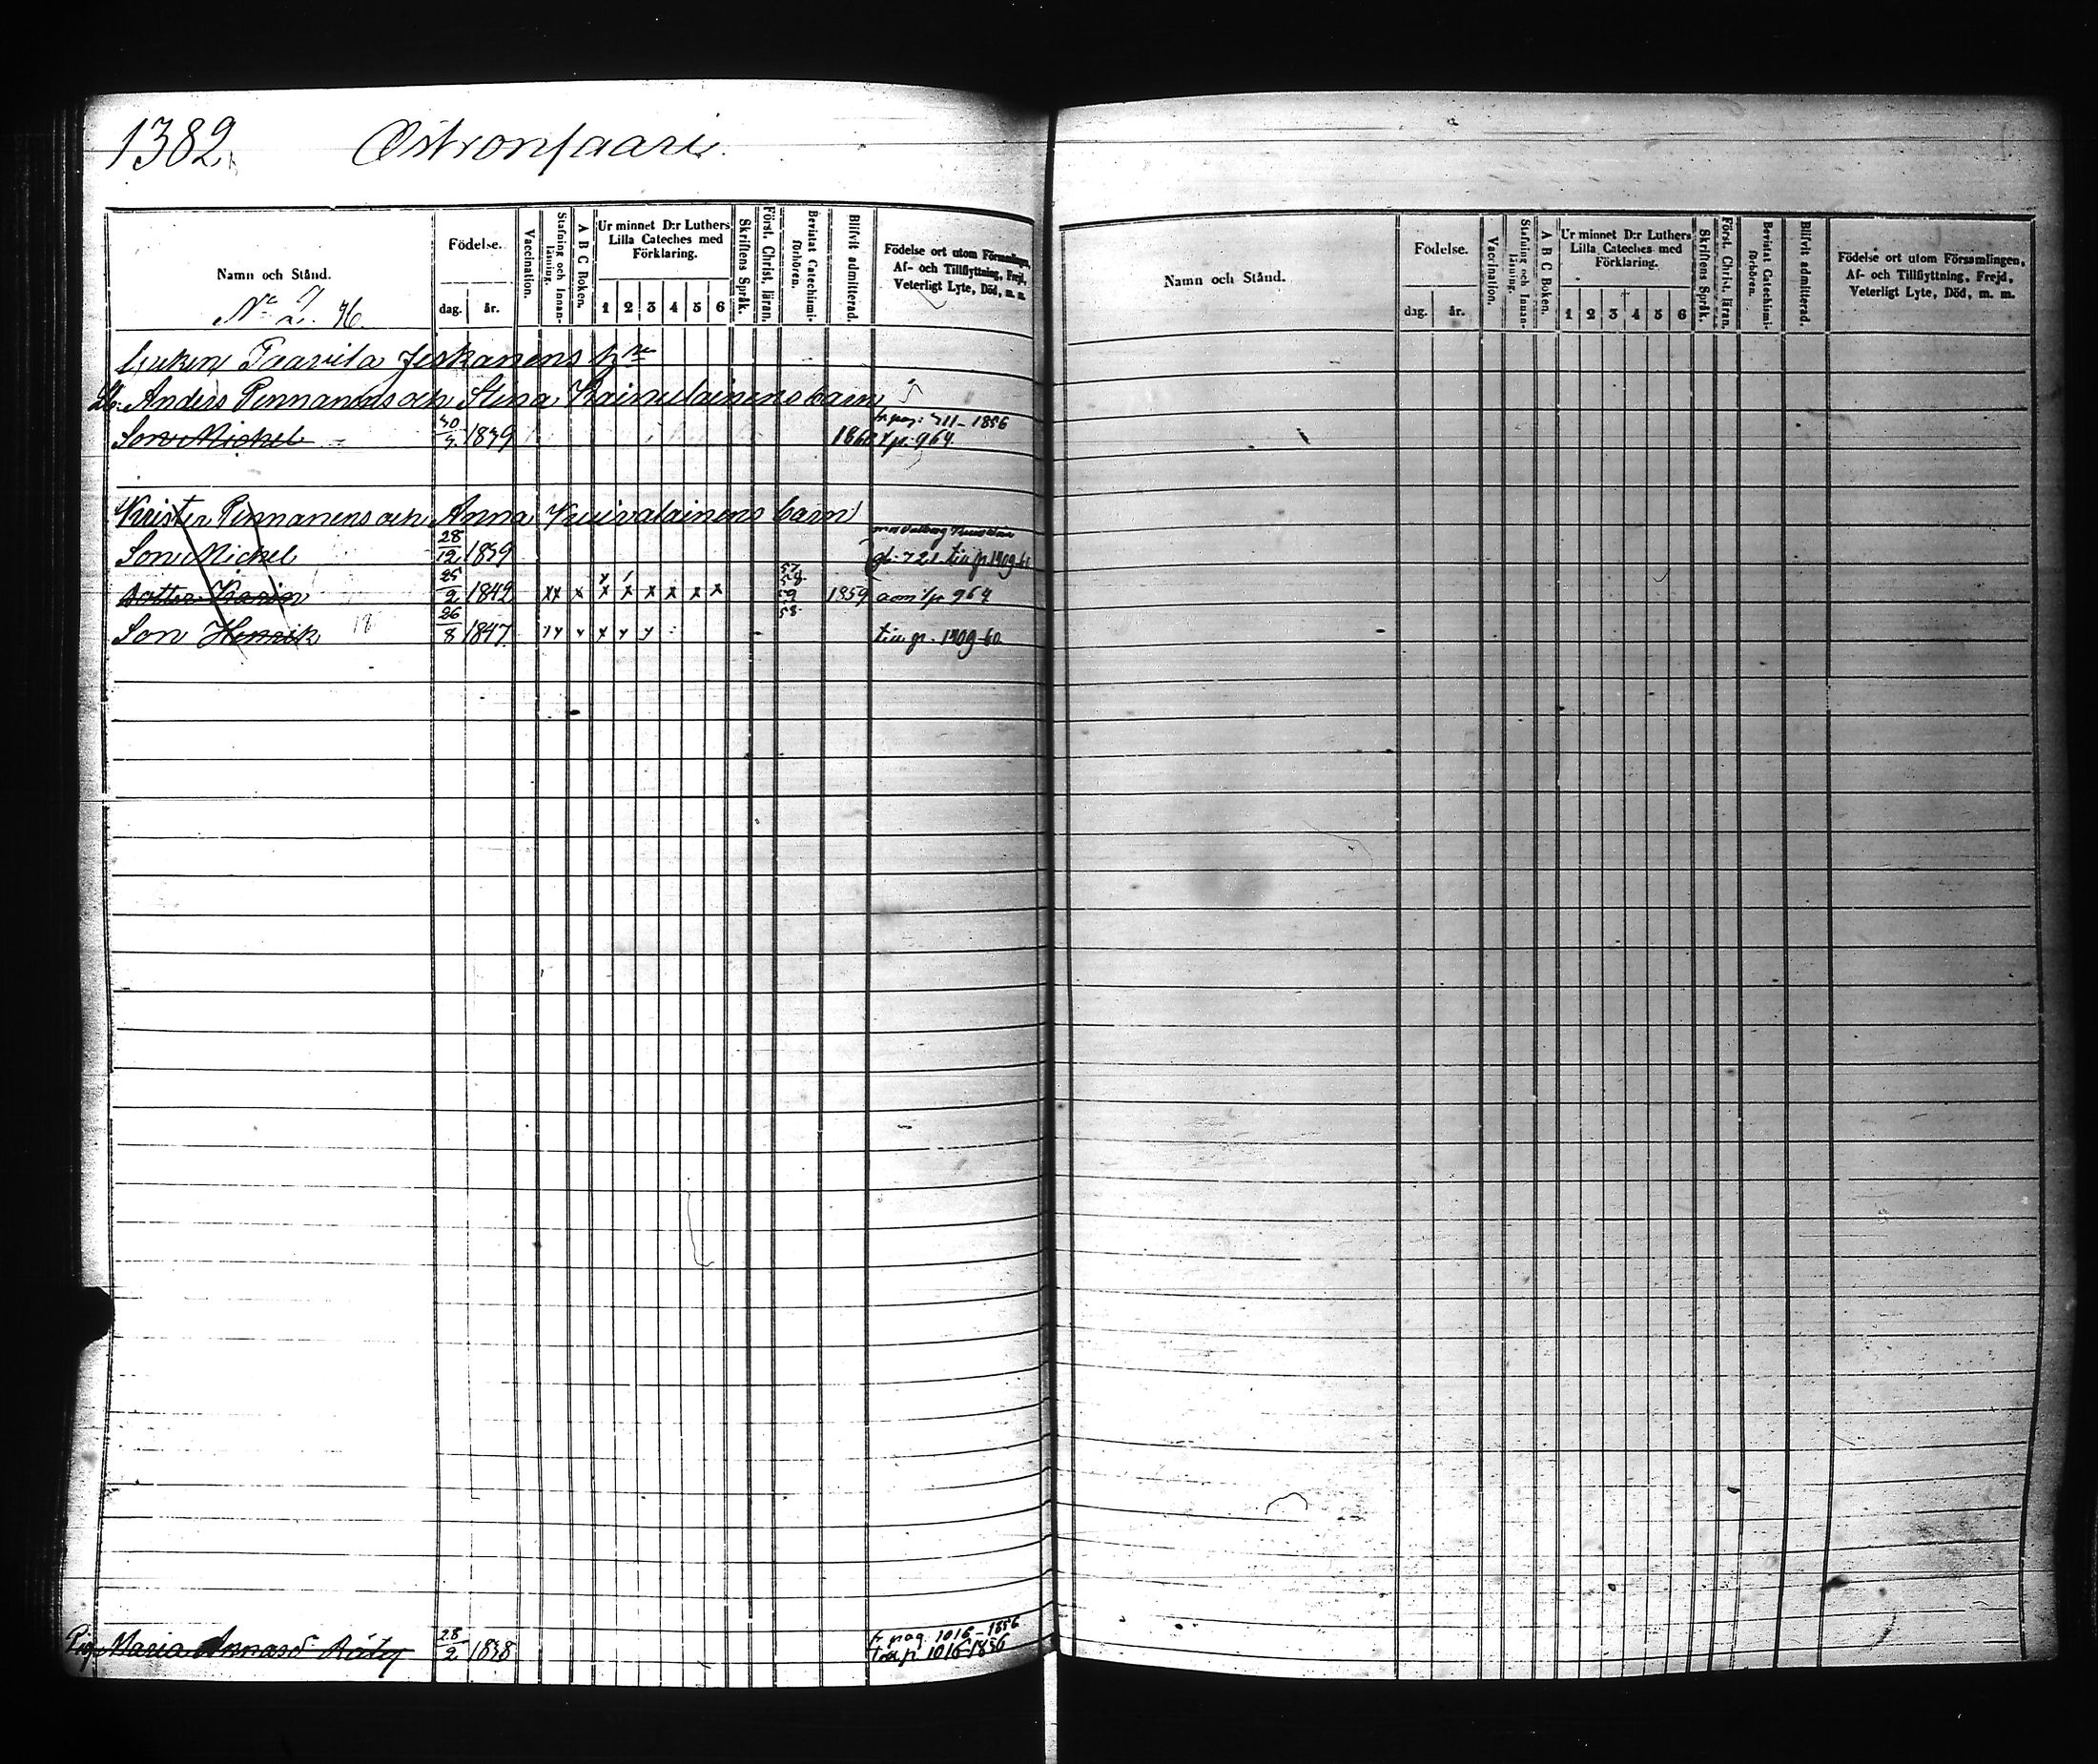 1382.
Ostronsaari.
Namn och Stånd.
No 2. 76.
Födelse.
dag. år.
Vaccination.
Stafning och Innanläsning.
A B C Boken.
Ur minnet D:r Luthers Lilla Cateches med Förklaring.
1 2 3 4 5 6
Skriftens Språk.
Först. Christ. läran.
Bevistat Catechismiförhören.
Blifvit admitterad.
Födelse ort utom Församlingen,
Af- och Tillflyttning, Frejd,
Veterligt Lyte, Död, m. m.
Taavila Jeskanens
Anders Pennanens och Stina Kainulainens barn
Son Michel 1839 1860 p. 964
711-1856
Krister Pennanens och Anna Kuivalainens barn
Son Michel 28/12 1839 721 p 1409-60
57 58
Dotter Karin 25/2 1842 xx x x x x x x x 59 1859 964
58
Son Henrik 26/8 1847 p. 1409-60
Pig. Maria Annasd. Räty 28/2 1838 pag 1016-1856
p 1016-1856
Namn och Stånd.
Födelse.
dag. år.
Vaccination.
Stafning och Innanläsning.
A B C Boken.
Ur minnet D:r Luthers Lilla Cateches med Förklaring.
1 2 3 4 5 6
Skriftens Språk.
Först. Christ. läran.
Bevistat Catechismiförhören.
Blifvit admitterad.
Födelse ort utom Församlingen,
Af- och Tillflyttning, Frejd,
Veterligt Lyte, Död, m. m.